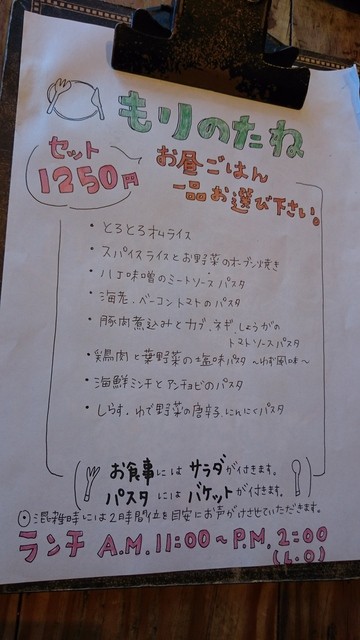 もりのたね
セット
1250円
お昼ごはん
一品お選び下さい。
・とろとろオムライス
・スパイスライスとお野菜のオーブン焼き
・八丁味噌のミートソースパスタ
・海老、ベーコントマトのパスタ
・豚肉煮込みとカブ、ネギ、しょうがの
トマトソースパスタ
・鶏肉と葉野菜の塩味パスタ 〜わさび風味〜
・海鮮ミンチとアンチョビのパスタ
・しらす、ゆで野菜の唐辛、にんにくパスタ
お食事にはサラダが付きます。
パスタにはバケットが付きます。
混雑時には2時間位を目安にお声がけさせていただきます。
ランチ A.M.11:00〜P.M.2:00
(L.O)